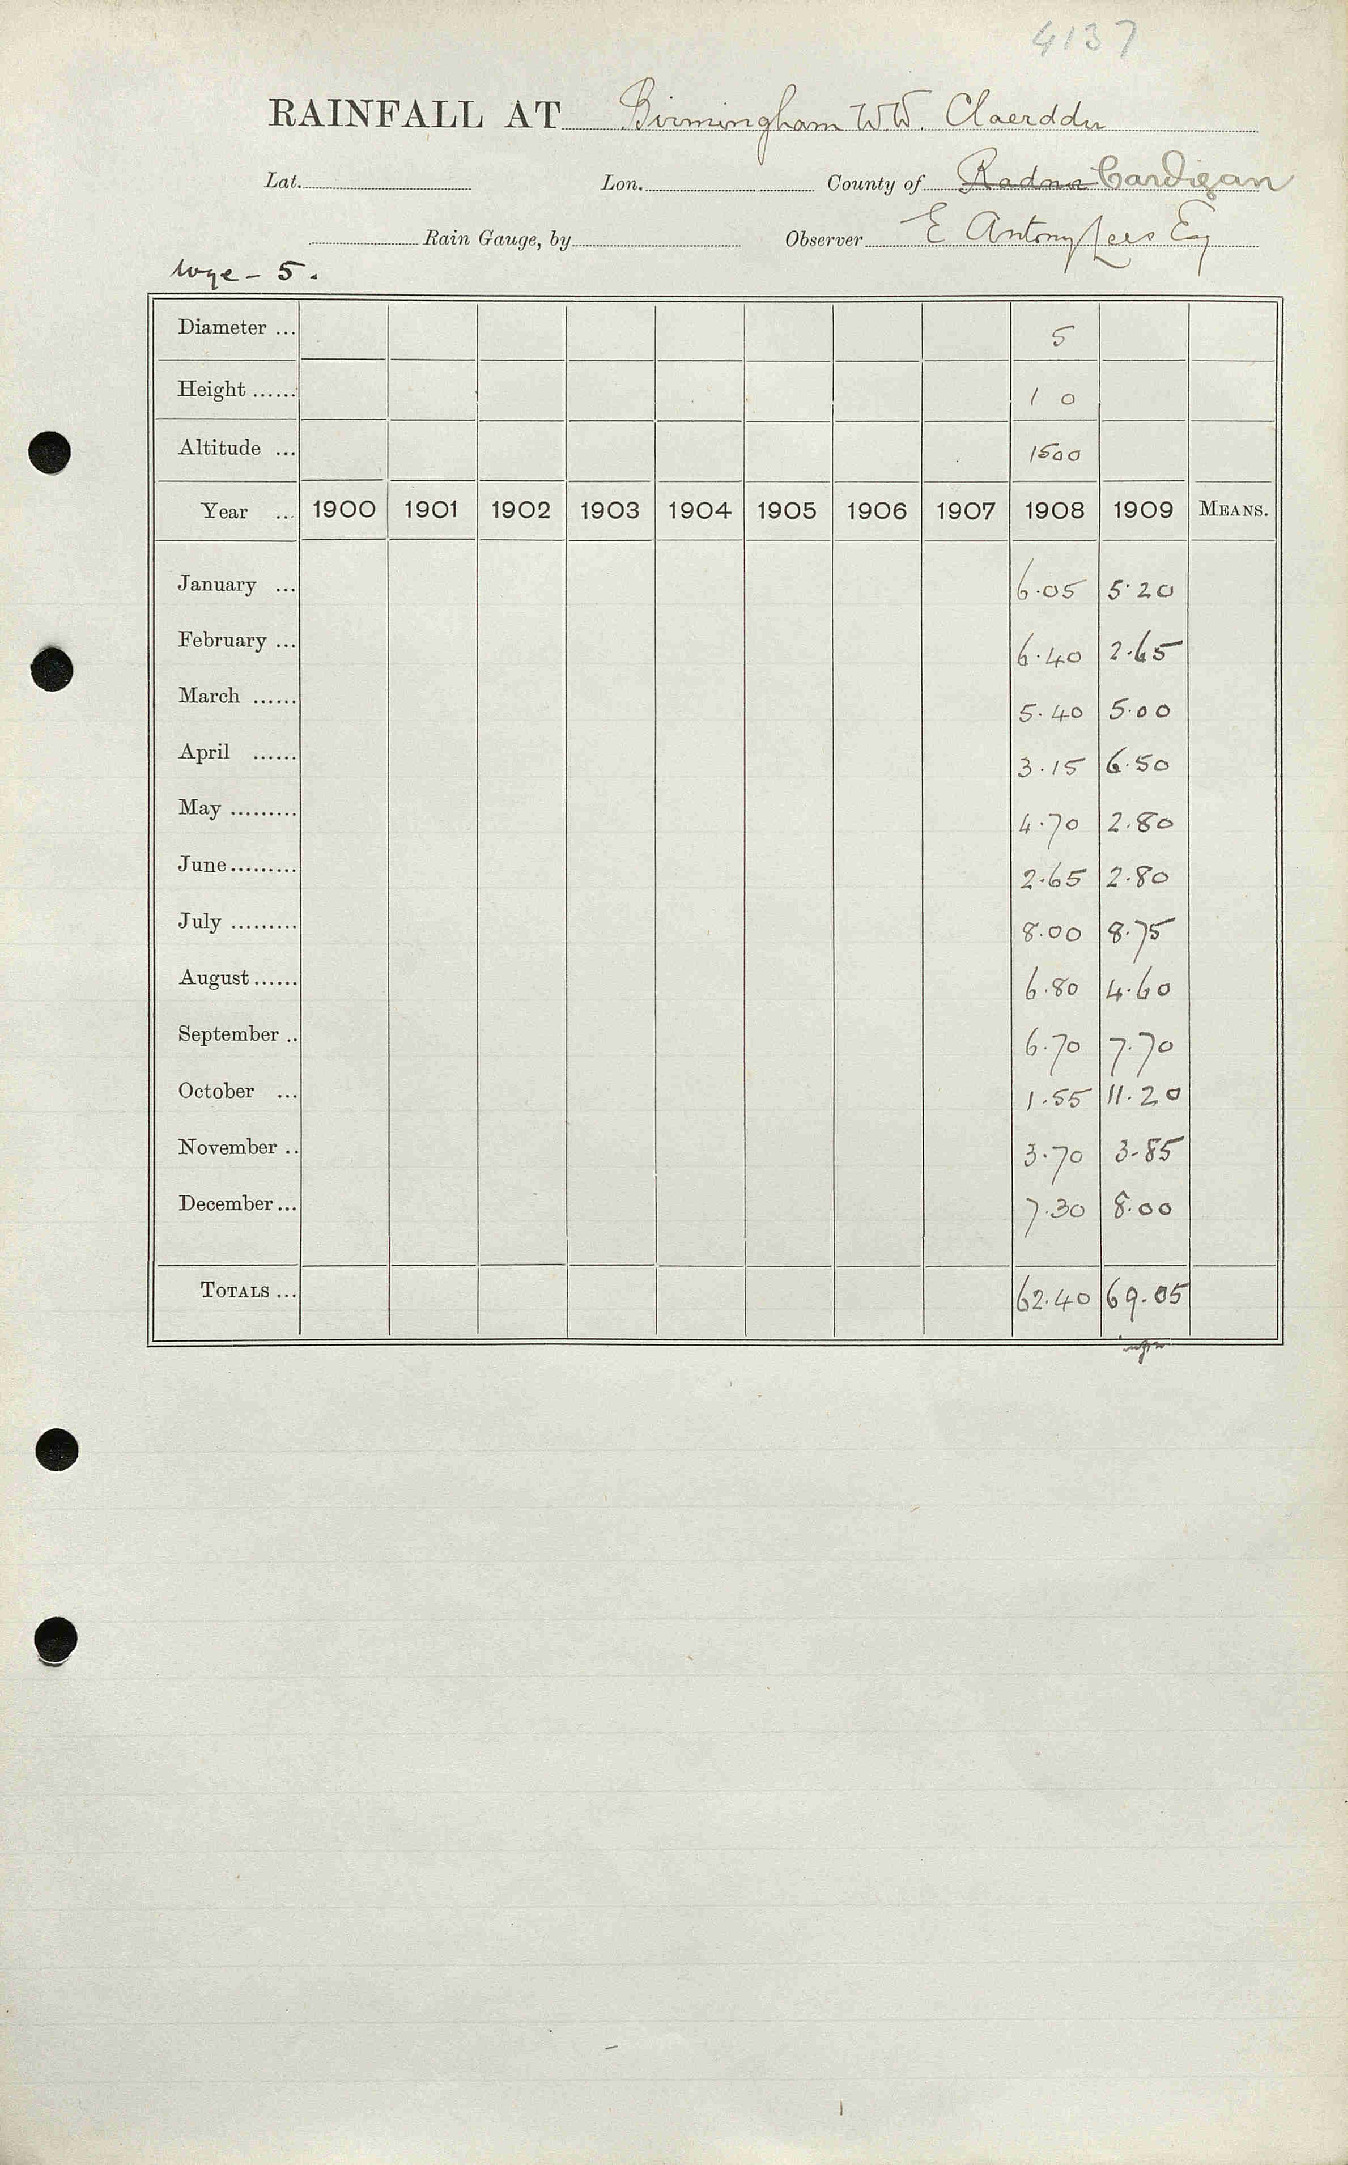 4137
RAINFALL AT Birmingham W.W. Claerddu
Lat. Lon. County of Radnor Cardigan
Rain Gauge, by Observer E Antony Lees Esq
Wye - 5.
Diameter ... 5
Height ...... 1 0
Altitude ... 1500
Year ... 1900 1901 1902 1903 1904 1905 1906 1907 1908 1909 MEANS.
January ... 6.05 5.20
February ... 6.40 2.65
March ...... 5.40 5.00
April ...... 3.15 6.50
May ......... 4.70 2.80
June ......... 2.65 2.80
July ......... 8.00 8.75
August ...... 6.80 4.60
September .. 6.70 7.70
October ... 1.55 11.20
November .. 3.70 3.85
December ... 7.30 8.00
TOTALS ... 62.40 69.05